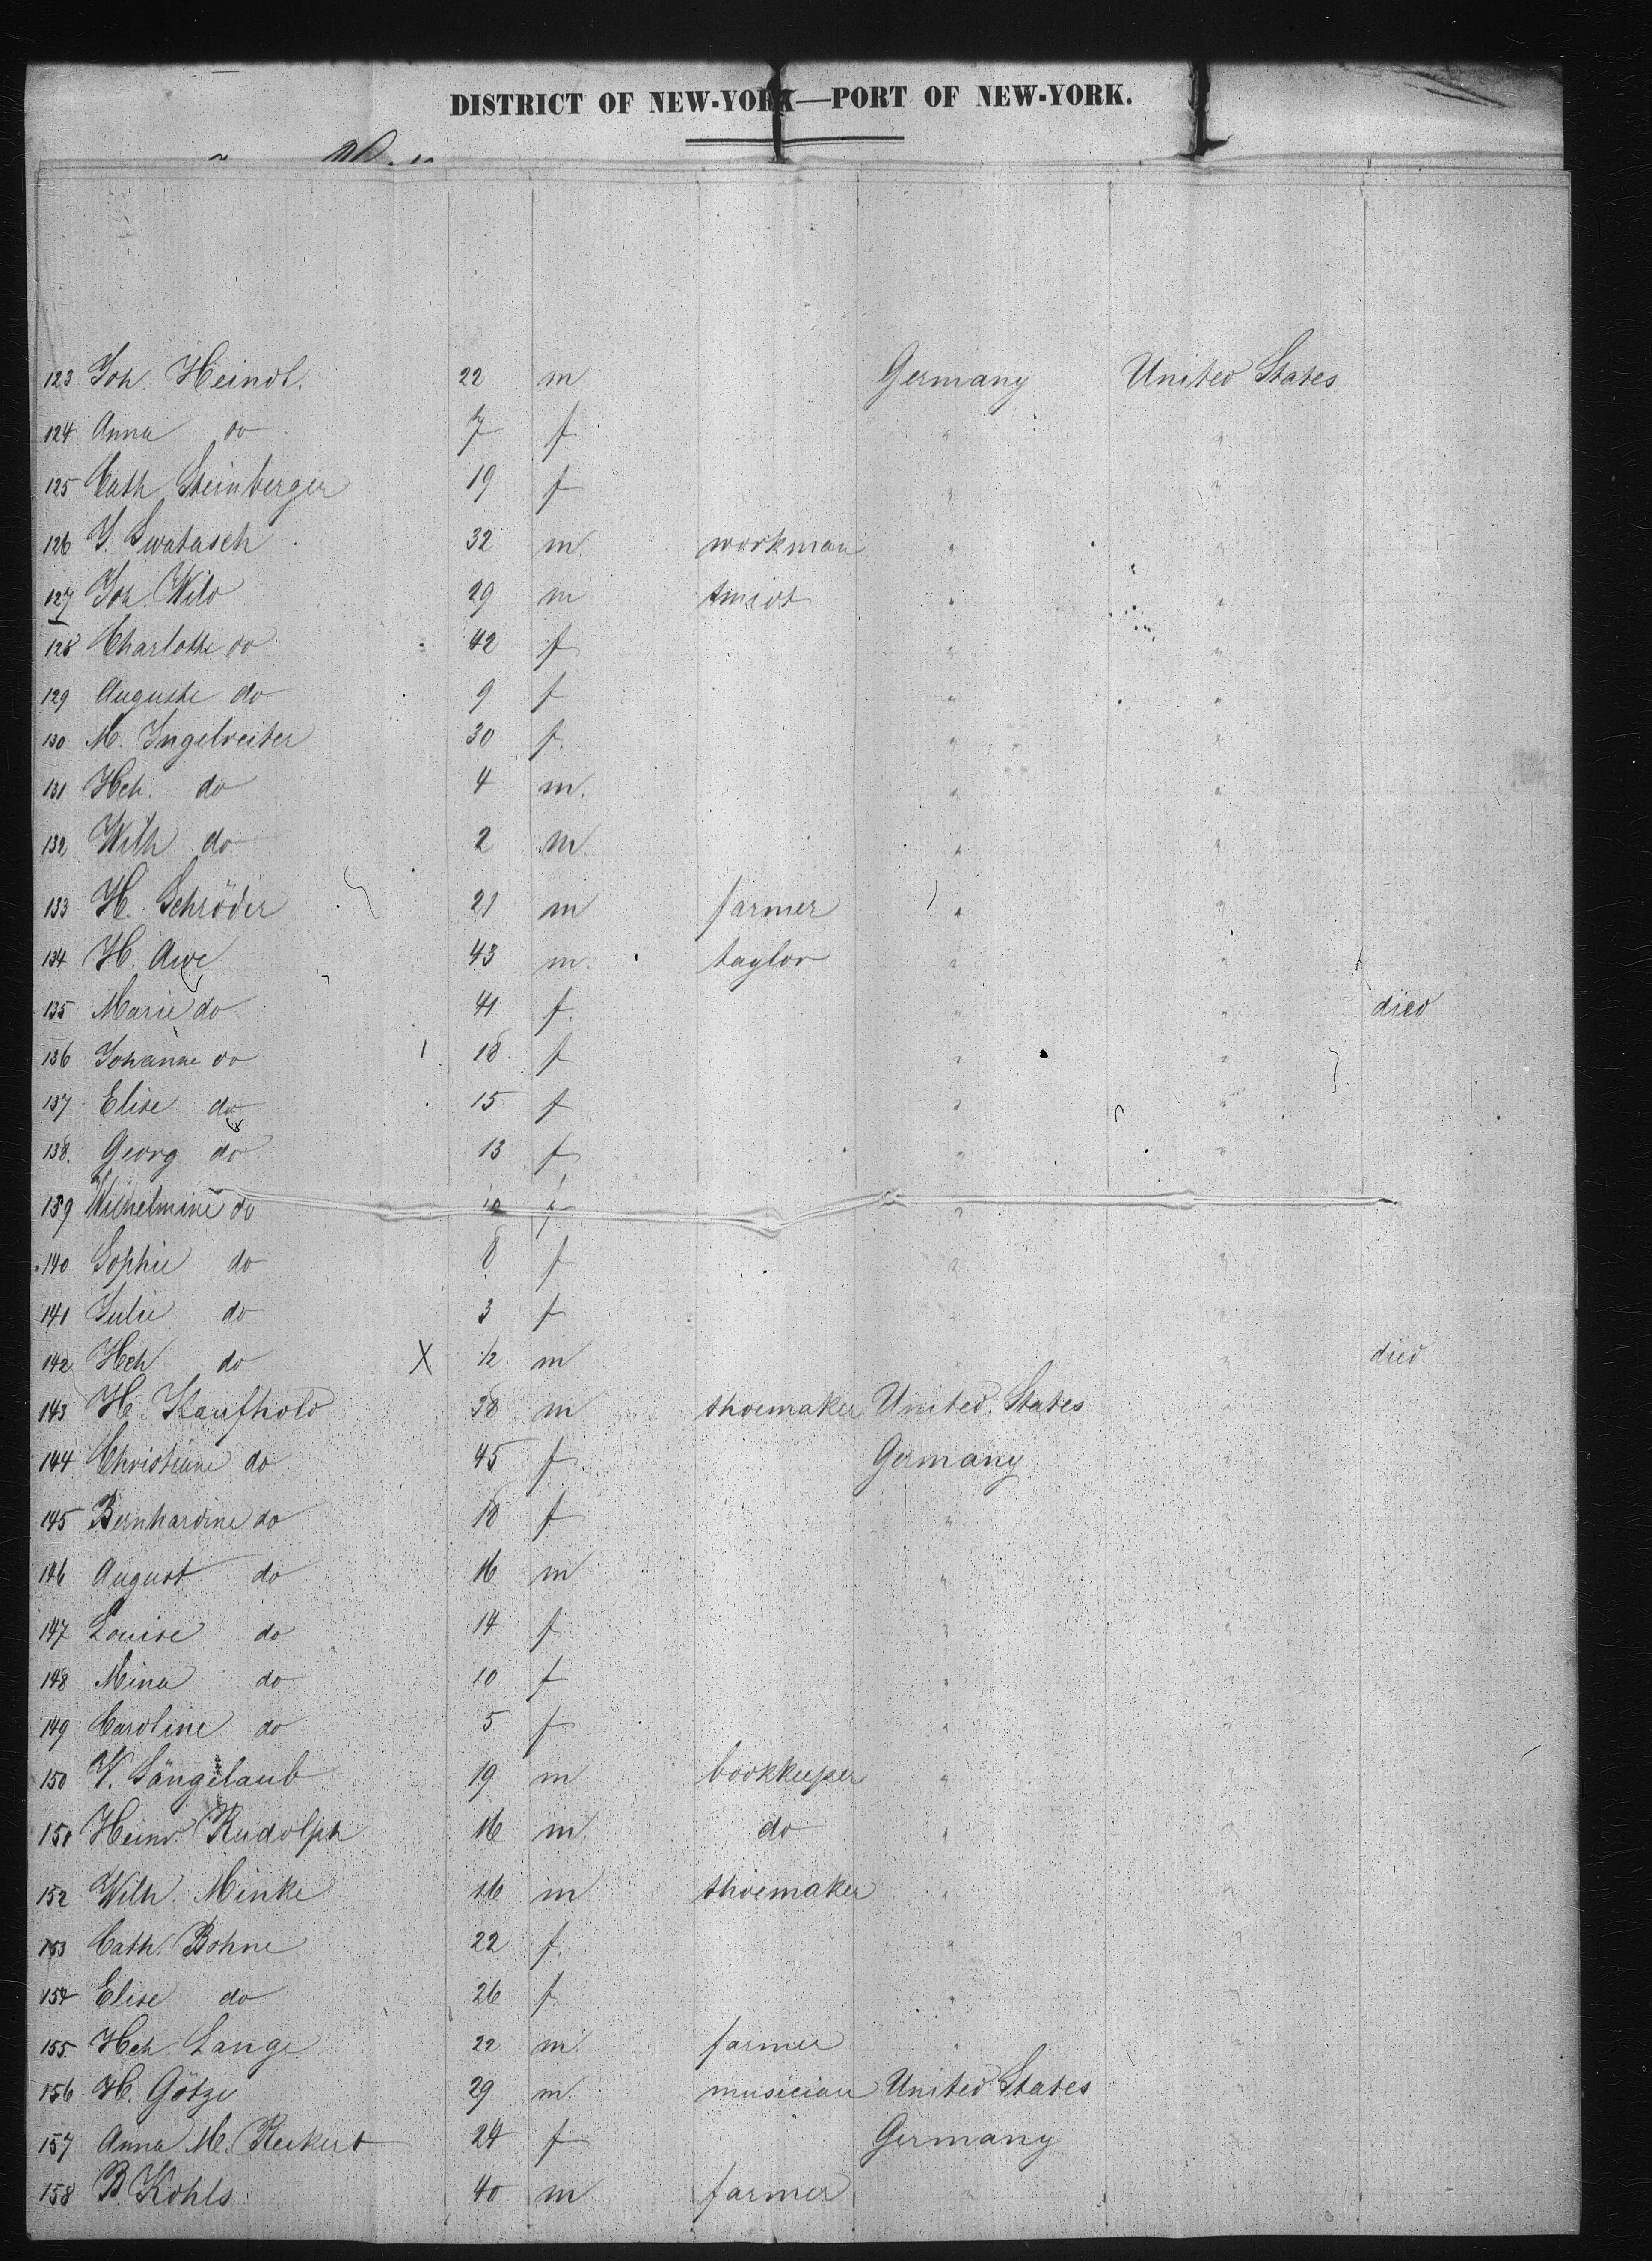 DISTRICT OF NEW-YORK—PORT OF NEW-YORK.
123 Joh. Heindl. 22 m Germany United States
124 Anna do 7 f " "
125 Cath Steinberger 19 f " "
126 J. Swatasch 32 m. workman " "
127 Joh. Wild 29 m smidt " "
128 Charlotte do 42 f " "
129 Auguste do 9 f " "
130 M. Ingelreiter 30 f. " "
131 Hch. do 4 m. " "
132 Wilh do 2 m. " "
133 H. Schröder 21 m farmer " "
134 H. Awe 43 m. taylor " "
135 Marie do 41 f. " " died
136 Johanne do 18 f " "
137 Elise do 15 f " "
138. Georg do 13 f " "
139 Wilhelmine do 10 f "
140 Sophie do 8 f " "
141 Julie do 3 f " "
142 Hch do X 1/2 m " " died
143 H. Kaufhold 38 m shoemaker United States "
144 Christiane do 45 f Germany "
145 Bernhardine do 18 f " "
146 August do 16 m " "
147 Louise do 14 f " "
148 Mina do 10 f " "
149 Caroline do 5 f " "
150 W. Sängelaub 19 m bookkeeper "
151 Heinr. Rudolph 16 m. do " "
152 Wilh. Minke 16 m shoemaker " "
153 Cath. Bohne 22 f. " "
154 Elise do 26 f " "
155 Hch Lange 22 m farmer " "
156 H. Götze 29 m. musician United States "
157 Anna M. Reckert 24 f Germany "
158 B. Kohls 40 m farmer " "